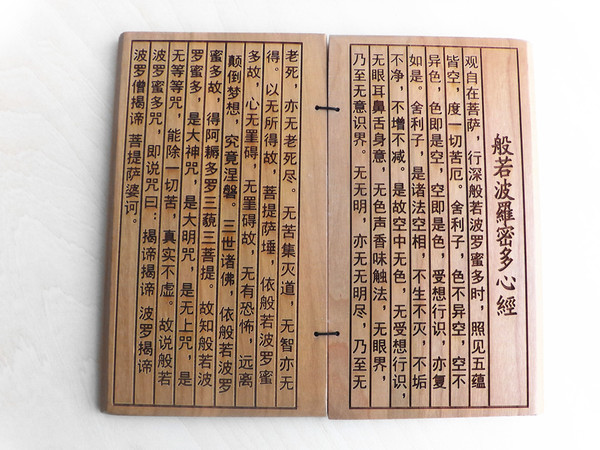 般若波羅密多心經
观自在菩萨，行深般若波罗蜜多时，照见五蕴
皆空，度一切苦厄。舍利子，色不异空，空不
异色，色即是空，空即是色，受想行识，亦复
如是。舍利子，是诸法空相，不生不灭，不垢
不净，不增不减。是故空中无色，无受想行识，
无眼耳鼻舌身意，无色声香味触法，无眼界，
乃至无意识界。无无明，亦无无明尽，乃至无
老死，亦无老死尽。无苦集灭道，无智亦无
得。以无所得故，菩提萨埵，依般若波罗蜜
多故，心无罣碍，无罣碍故，无有恐怖，远离
颠倒梦想，究竟涅磐。三世诸佛，依般若波罗
蜜多故，得阿耨多罗三藐三菩提。故知般若波
罗蜜多，是大神咒，是大明咒，是无上咒，是
无等等咒，能除一切苦，真实不虚。故说般若
波罗蜜多咒，即说咒曰：揭谛揭谛 波罗揭谛
波罗僧揭谛 菩提萨婆诃。